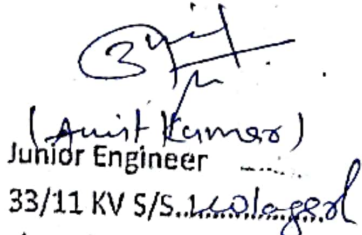 (Amit Kumar)
Junior Engineer
33/11 KV S/S.